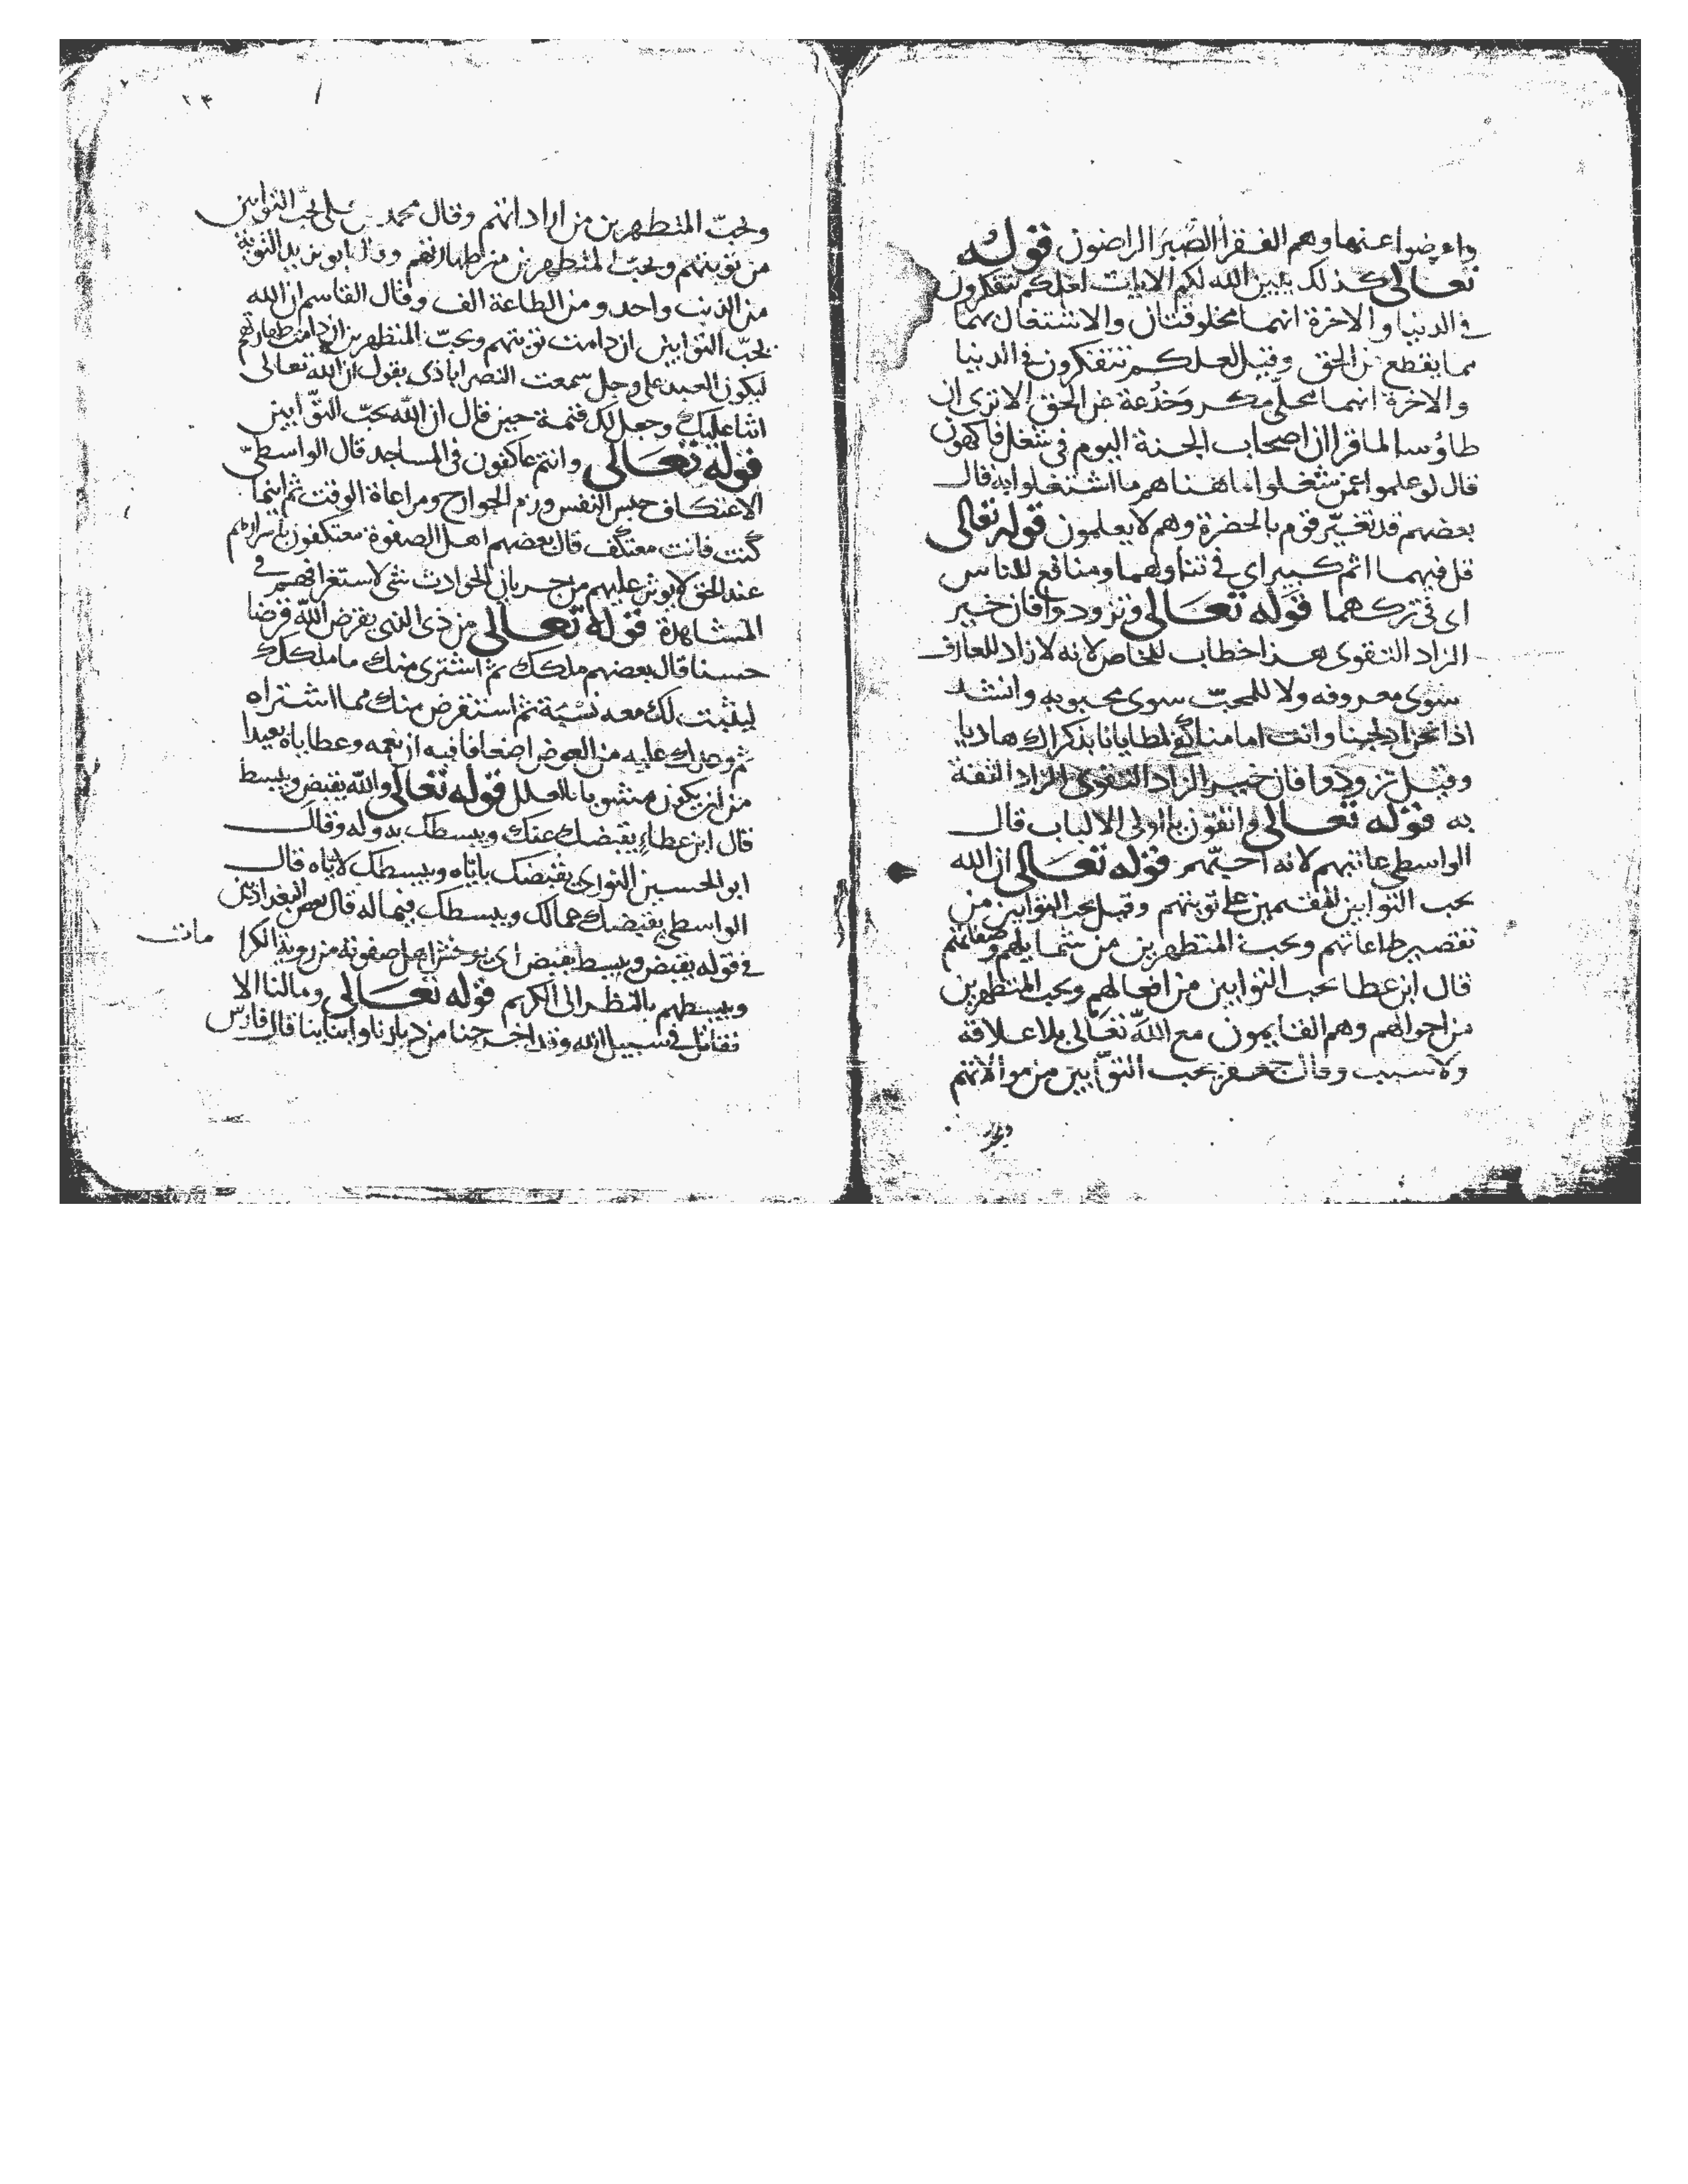 واعرضوا عنها وهم الفقرأ الصُبَر الراضون قوله
تعالى كذلك يبين الله لكم الايات لعلكم تتفكرون
في الدنيا والاخرة انهما مخلوقتان والاشتغال بهما
مما يقطع عن الحق وقيل لعلكم تتفكرون في الدنيا
والاخرة انهما محلّي مكر وخدعة عن الحق الا ترى ان
طاوسا لما قرا ان اصحاب الجنة اليوم في شغل فاكهون
قال لو علموا عمن شغلوا ما هناهم ما اشتغلوا به قال
بعضهم قد تغيّر قوم بالحضرة وهم لا يعلمون قوله تعالى
قل فيهما اثم كبير اي في تناولهما ومنافع للناس
اى في تركهما قوله تعالى وتزودوا فان خير
الزاد التقوى هذا خطاب للخاص لانه لا زاد للعارف
سوى معروفه ولا للمحبّ سوى محبوبه وانشد
اذا نحن ادلجنا وانت امامنا كفى لمطايانا بذكراك هاديا
وقيل تزودوا فان خير الزاد التقوى الزاد الثقة
به قوله تعالى واتقون يا اولى الالباب قال
الواسطي عاتبهم لانه احبّهم قوله تعالى ان الله
يحب التوابين المقيمين على توبتهم وقيل يحب التوابين من
تقصير طاعاتهم ويحب المتطهرين من شمايلهم وصفاتهم
قال ابن عطا يحب التوابين من افعالهم ويحب المتطهرين
من احوالهم وهم القايمون مع الله تعالى بلا علاقة
ولا سبب وقال جعفر يحب التوّابين من سوالاتهم
ويحب
٢٤
ويحبّ المتطهرين من اراداتهم وقال محمد بن علي يحبّ التوابين
من توبتهم ويحبّ المتطهرين من طهارتهم وقال ابو يزيد التوبة
من الذنب واحد ومن الطاعة الف وقال القاسم ان الله
يحبّ التوابين ان دامت توبتهم ويحبّ المتطهرين ان دامت طهارتهم
ليكون العبد على وجل سمعت النصراباذى يقول ان الله تعالى
اثنا عليك وجعل لك قيمة حين قال ان الله يحبّ التوّابين
قوله تعالى وانتم عاكفون في المساجد قال الواسطيّ
الاعتكاف حبس النفس وزم الجوارح ومراعاة الوقت ثم اينما
كنت فانت معتكف قال بعضهم اهل الصفوة معتكفون باسرارهم
عند الحق لا يوثر عليهم من جريان الحوادث شى لاستغراقهم في
المشاهدة قوله تعالى من ذى الذى يقرض الله قرضا
حسنا قال بعضهم ملكك ثم اشترى منك ما ملكك
ليثبت لك معه نسْبَة ثم استقرض منك مما اشتراه
ثم وعدك عليه من العوض اضعافا فيه ان نعمه وعطاياه بعيدا
من ان يكون مشوبا بالعلل قوله تعالى والله يقبض ويبسط
قال ابن عطاء يقبضك عنك ويبسطك به وله وقال
ابو الحسين النوري يقبضك باياه ويبسطك لاياه قال
الواسطي يقبضك عما لك ويبسطك فيما له قال بعض البغداذيين
في قوله يقبض ويبسط يقبض اى يوحش اهل صفوته من روية الكرا
مات
ويبسطهم بالنظر الى الكريم قوله تعالى ومالنا الا
نقاتل في سبيل الله وقد اخرجنا من ديارنا وابناينا قال فارس